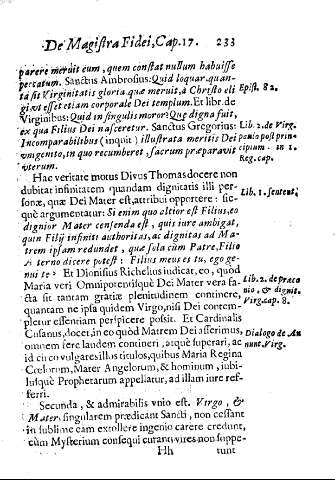 De Magistra Fidei, Cap. 17. 233
parere meruit eum, quem constat nullum habuisse
peccatum. Sanctus Ambrosius: Quid loquar, quan-
ta sit Virginitatis gloria, quæ meruit, à Christo eli
gi, vt esset etiam corporale Dei templum. Et libr. de
Virginibus: Quid in singulis moror? Quæ digna fuit,
ex qua Filius Dei nasceretur. Sanctus Gregorius:
Incomparabilibus (inquit) illustrata meritis Dei
vnigenito, in quo recumberet, sacrum præparavit
vterum.
Hac veritate motus Divus Thomas docere non
dubitat infinitatem quandam dignitatis illi per-
sonæ, quæ Dei Mater est, attribui oportere: sic-
què argumentatur: Si enim quo altior est Filius, eo
dignior Mater censenda est, quis iure ambigat,
quin Filij infiniti authoritas, ac dignitas ad Ma-
trem ipsam redundet, quæ sola cum Patre, Filio
æterno dicere potest: Filius meus es tu, ego ge-
nui te? Et Dionysius Richelius iudicat, eo, quòd
Maria veri Omnipotentisquè Dei Mater vera fa-
cta sit tantam gratiæ plenitudinem continere,
quantam ne ipsa quidem Virgo, nisi Dei contem-
pletur essentiam perspicere possit. Et Cardinalis
Cusanus, docet, in eo quòd Matrem Dei asserimus,
omnem ferè laudem contineri, atquè superari, ac
id circo vulgares illos titulos, quibus Maria Regina
Cœlorum, Mater Angelorum, & hominum, iubi-
lusquè Prophetarum appellatur, ad illam iure ref-
ferri.
Secunda, & admirabilis vnio est. Virgo, &
Mater singularem prædicant Sancti, non cessant
in sublime eam extollere ingenio carere credunt,
cùm Mysterium consequi curant, vires non suppe-
Hh tunt
Epist. 82.
Lib. 2. de Virg.
paulo post prin-
cipum. in 1.
Reg. cap.
Lib. 1. sentent.
Lib. 2. de præco
nio, & dignit.
Virg. cap. 8.
Dialogo de An
nunt. Virg.